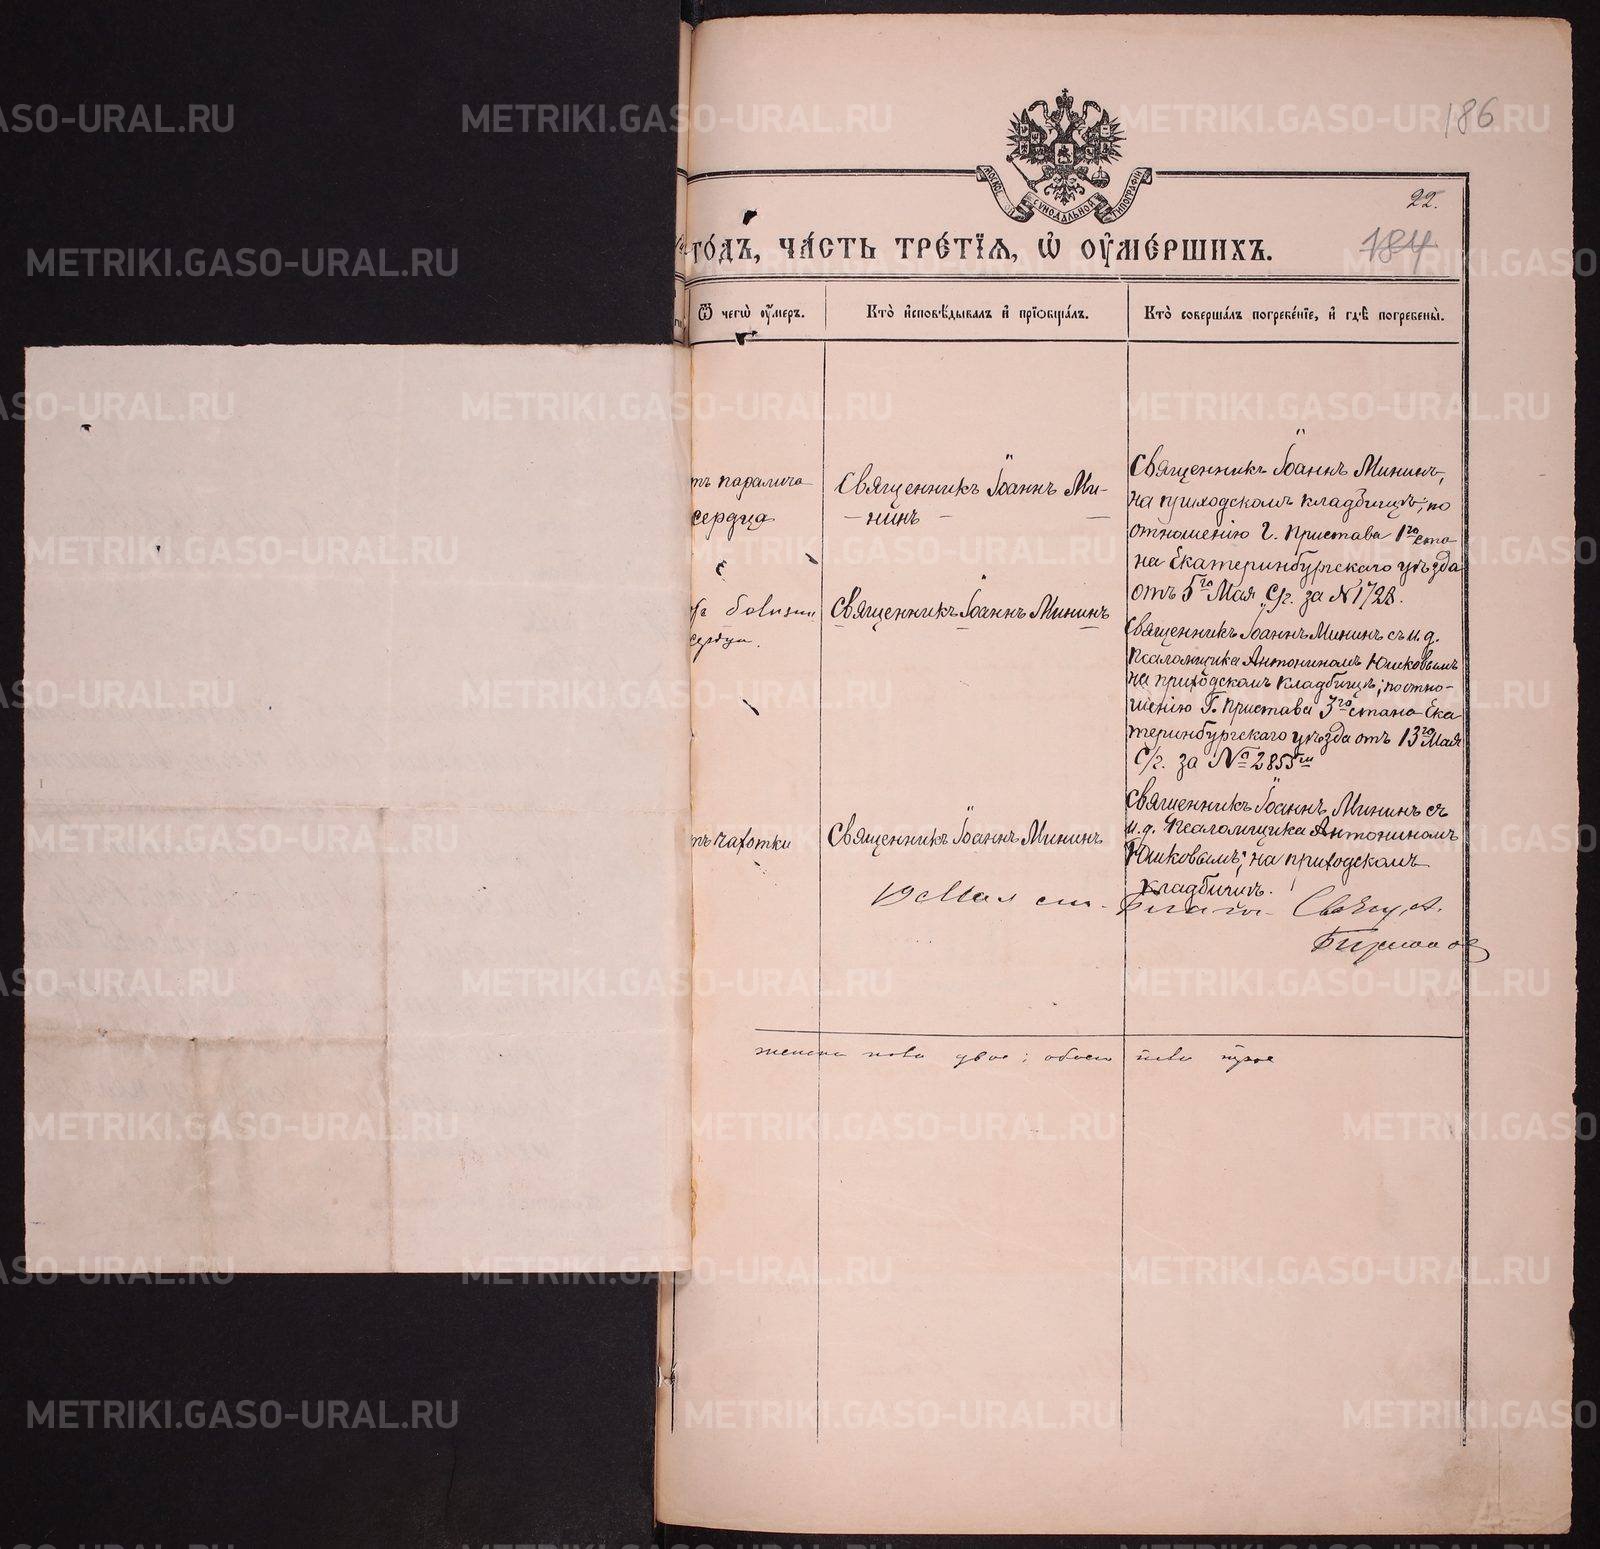 186
МОСКОВ
СѴНОДАЛЬНОЙ
ТИПОГРАФІИ
22.
184
го́дъ, ча́сть тре́тїѧ, ѡ҆ оу҆ме́ршихъ.
Ѿ чегѡ̀ оу҆́меръ.
Кто̀ и҆сповѣ́дывалъ и҆ прїѡбща́лъ.
Кто̀ соверша́лъ погребе́нїе, и҆ гдѣ̀ погребены̀.
тъ паралича
сердца
Священникъ Іоаннъ Ми-
– нинъ – –
Священникъ Іоаннъ Мининъ,
на приходскомъ кладбищѣ; по
отношенію Г. Пристава 1го ста
на Екатеринбургскаго уѣзда
отъ 5го Мая С/г. за №1728.
болѣзни
сердца.
Священникъ Іоаннъ Мининъ
Священникъ Іоаннъ Мининъ съ и. д.
Псаломщика Антониномъ Юшковымъ
на приходскомъ кладбищѣ; по отно-
шенію Г. Пристава 3го стана Ека
теринбургскаго уѣзда отъ 13го Мая
С/г. за № 2855м
тъ чахотки
Священникъ Іоаннъ Мининъ
Священникъ Іоаннъ Мининъ съ
и. д. Псаломщика Антониномъ
Юшковымъ; на приходскомъ
кладбищѣ.
женска пола двое; обоего пола трое
METRIKI.GASO-URAL.RU